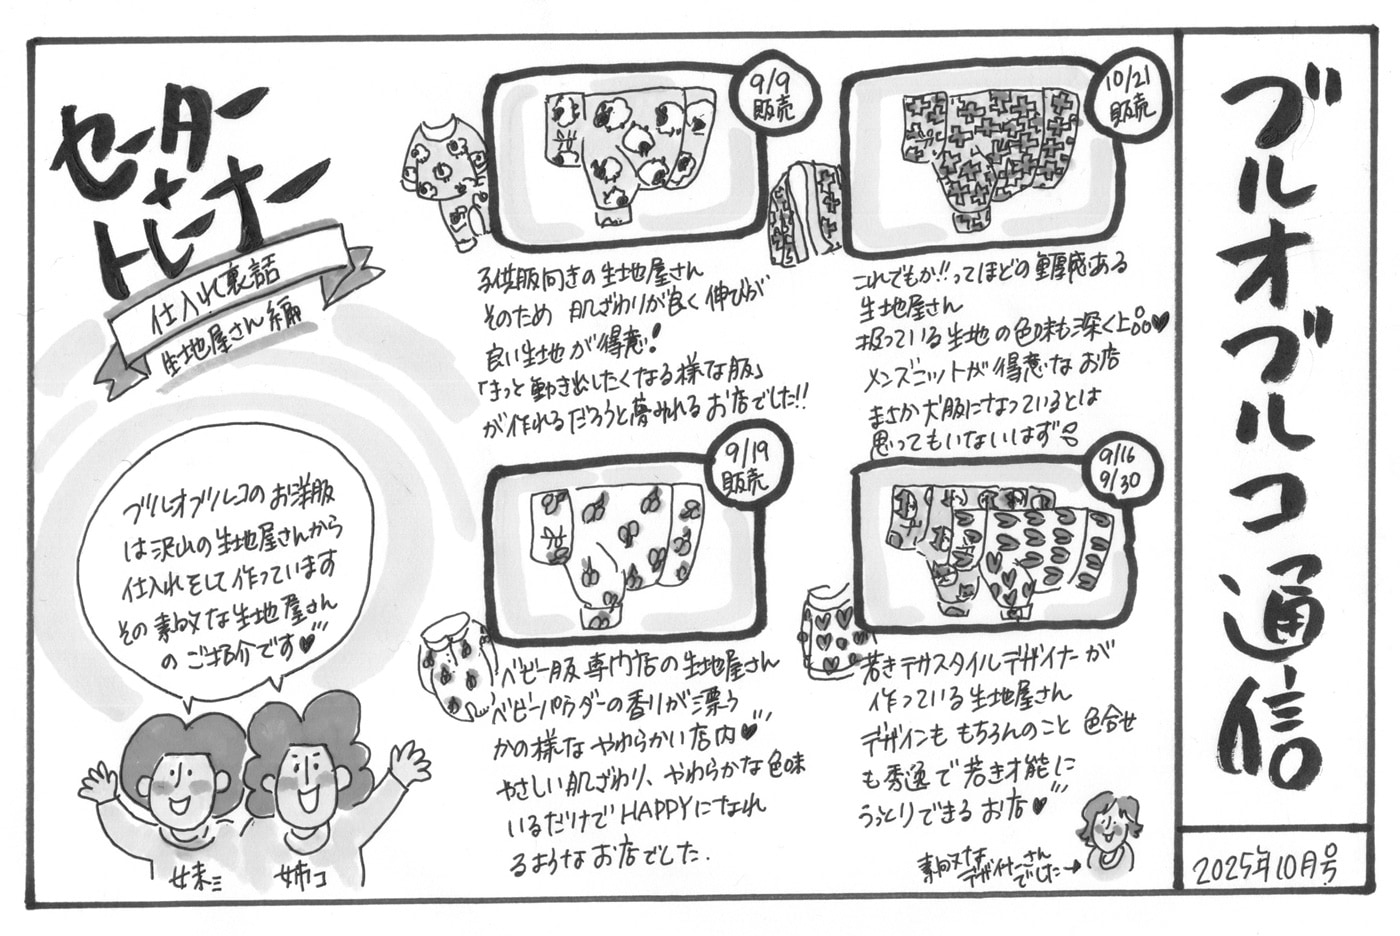 ブルオブルコ通信
2025年10月号
セーター
トレーナー
仕入れ裏話
生地屋さん編
ブルオブルコのお洋服
は沢山の生地屋さんから
仕入れをして作っています
その素敵な生地屋さん
のご紹介です♥
妹ミ
姉コ
9/9
販売
子供服向きの生地屋さん
そのため 肌ざわりが良く伸びが
良い生地が得意!
「きっと動き出したくなる様な服」
が作れるだろうと夢みれるお店でした!!
10/21
販売
これでもか!!ってほどの重厚感ある
生地屋さん
扱っている生地の色味も深く上品♥
メンズニットが得意なお店
まさか犬服になっているとは
思ってもいないはず
9/19
販売
ベビー服専門店の生地屋さん
ベビーパウダーの香りが漂う
かの様な やわらかい店内♥
やさしい肌ざわり、やわらかな色味
いるだけでHAPPYになれ
るようなお店でした.
9/16
9/30
若きテキスタイルデザイナーが
作っている生地屋さん
デザインも もちろんのこと 色合せ
も秀逸で若き才能に
うっとりできるお店♥
素敵な
デザイナーさん
でした→